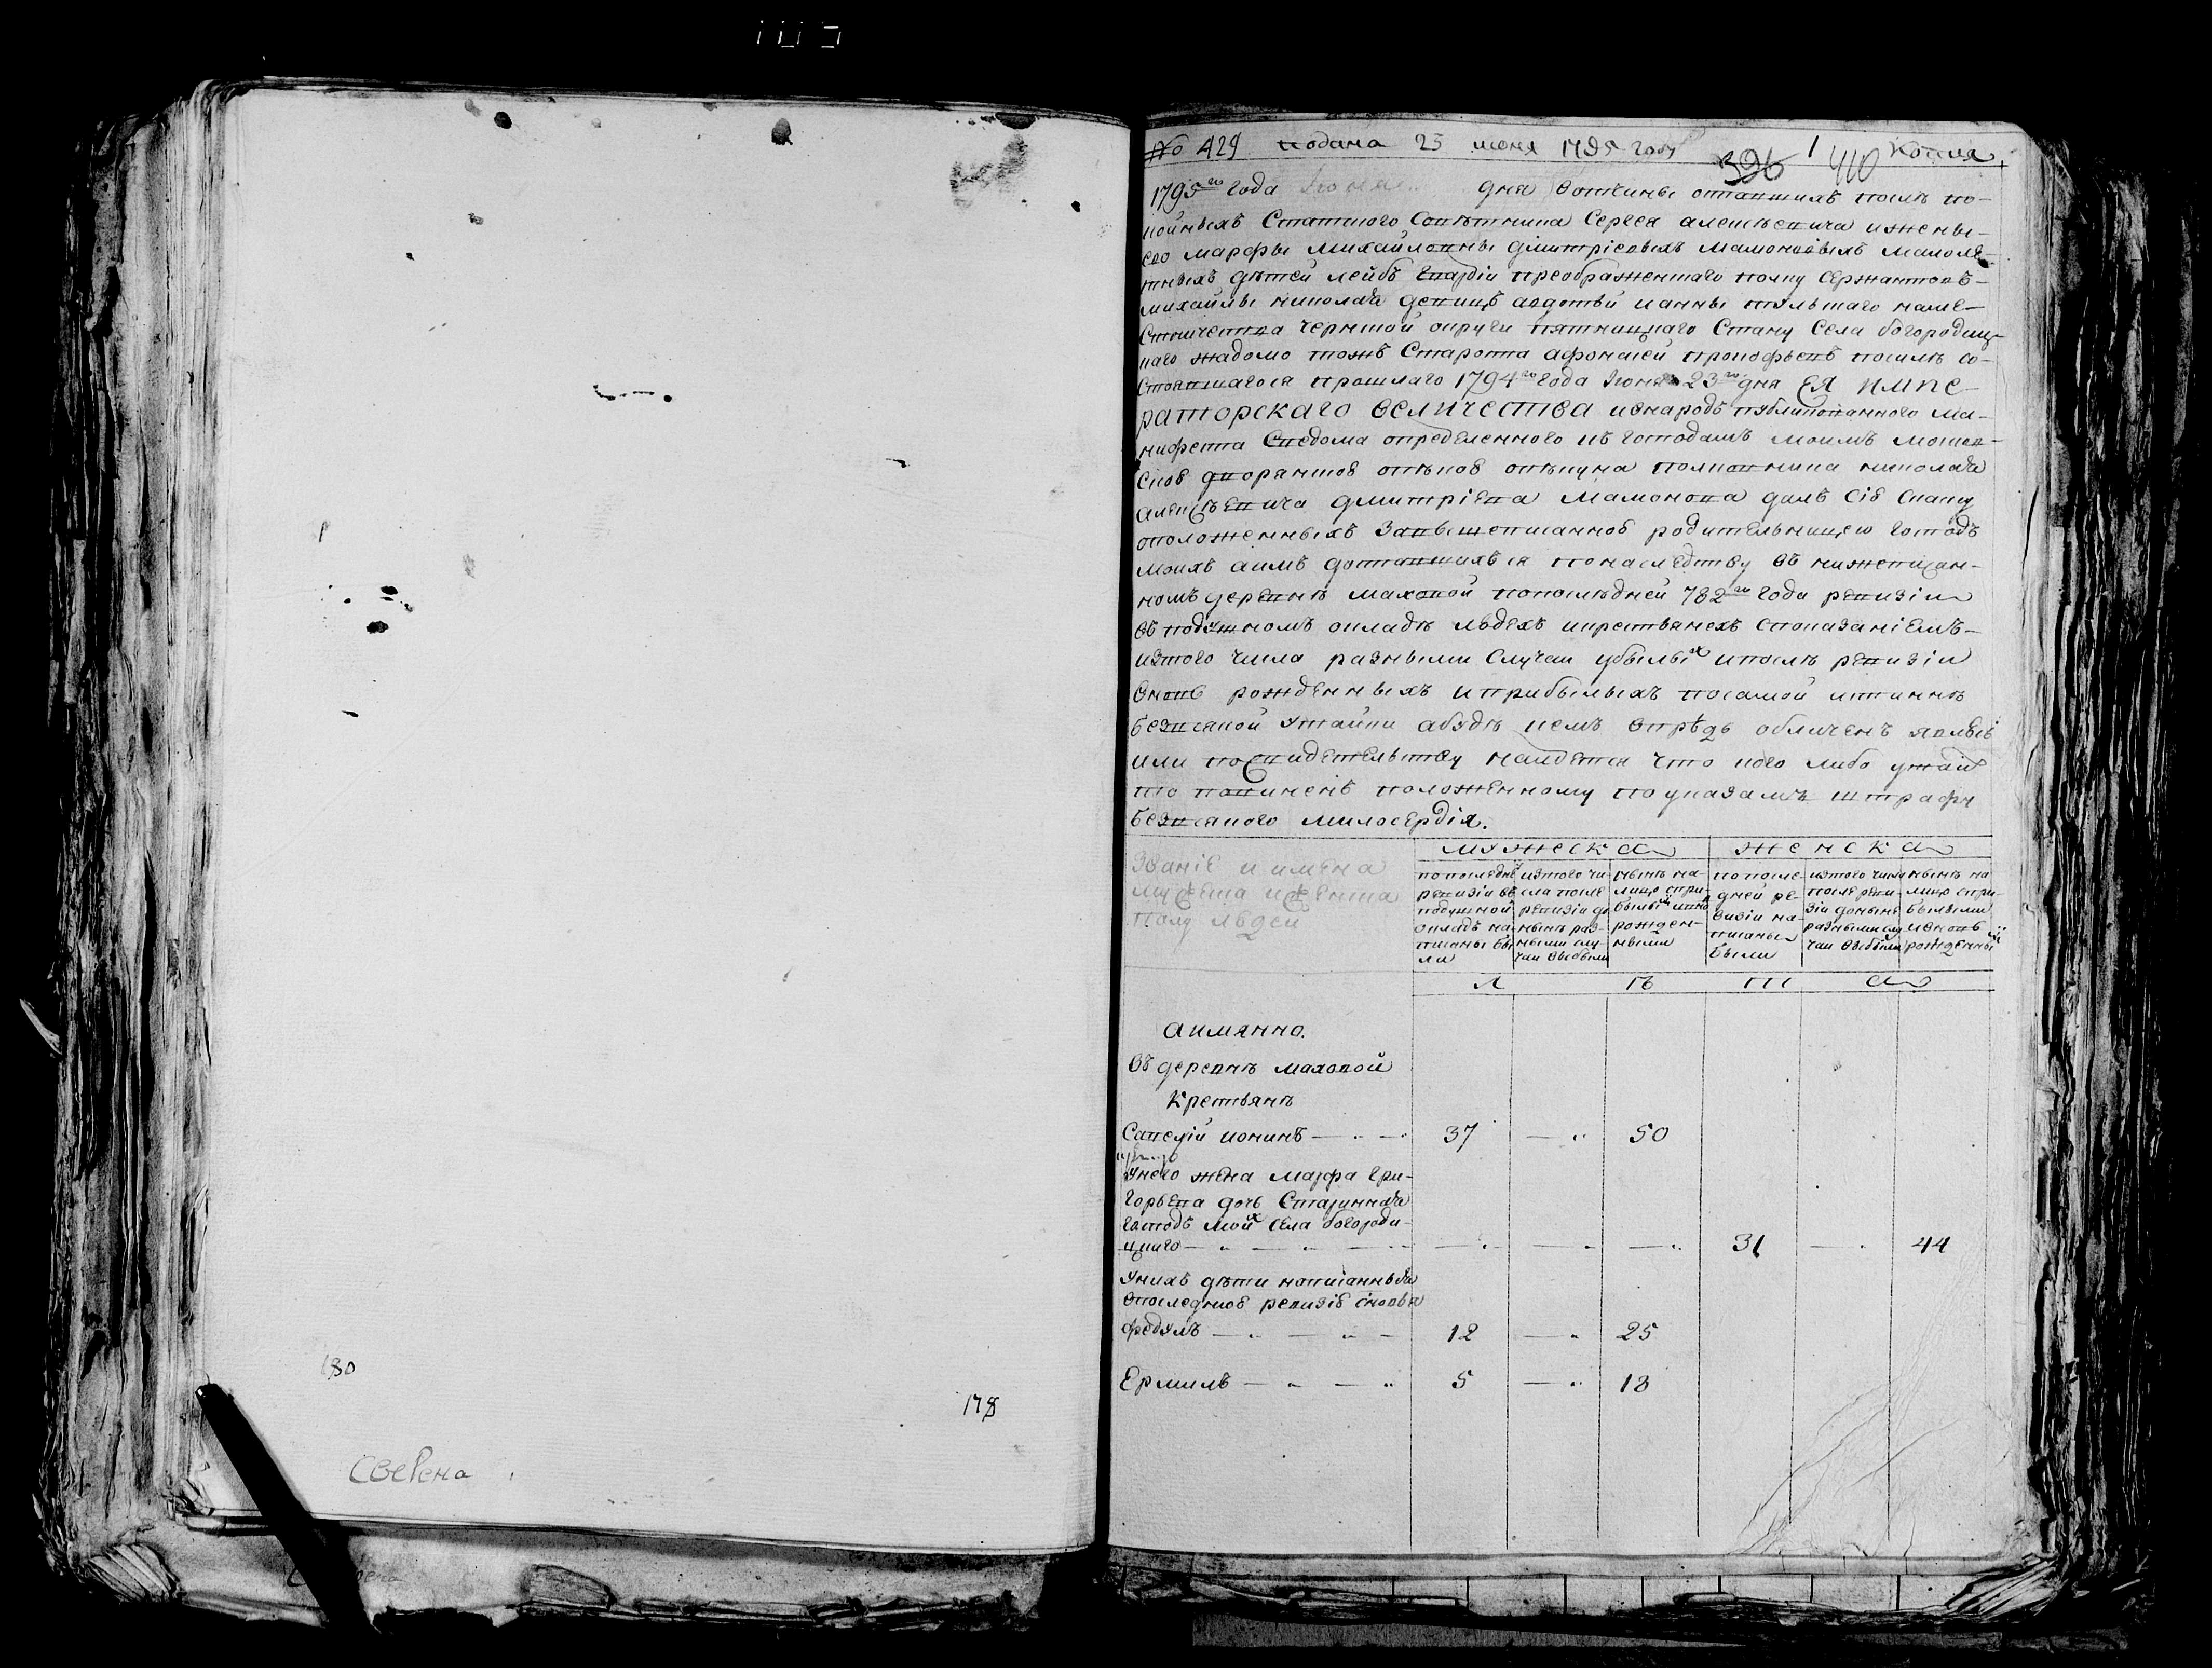 130
178
Сверена
№ 429 подана 25 июня 1795 году 1 копия
396 410
1795го года Июня дня вотчины оставшихъ послѣ по-
койныхъ Статского Советника Сергея алексѣевича ижены-
его марфы михайловны дмитріевыхъ мамоновыхъ малолѣ-
тныхъ дѣтей лейбъ гвардіи преображенского полку сержантовъ-
михайлы николая девицъ авдотьи ианны тульского наме-
стничества чернской округи пятницкаго стану села богородиц-
каго жадомо тожъ Староста афонасей прокофьевъ послѣ со-
стоявшагося прошлаго 1794го года Июня 23го дня ЕЯ ИМПЕ-
РАТОРСКАГО ВЕЛИЧЕСТВА ивнародъ публикованного ма-
нифеста Сведома определенного къ господамъ моимъ
дворянской опѣкою опѣкуна полковника николая
алексѣевича дмитріева мамонова далъ сію скаску
оположенныхъ Завышеписанною родительницею господъ
моихъ аимъ доставшихъся понаследству въ нижеписан-
номъ деревнѣ маховой попослѣдней 782го года ревизіи
въ подушномъ окладѣ людехъ икрестьянехъ споказаніемъ-
изтого числа разными случаи убылыхъ ипослѣ ревизіи
вновь рожденныхъ иприбылыхъ посамой истиннѣ
безвсякой утайки абудѣ кемъ впрѣдь обличенъ явлюсь
или посвидетельству найдется что кого либо утаилъ
то повиненъ положенному поуказамъ штрафу
безвсякого милосердія.
Званіе и имена
мужеска иженска
полу людей
мужеска женска
попоследней ревизіи въ подушной окладъ написаны были
изтого числа после ревизіи до нынѣ разными случаи выбыли
нынѣ на лицо сприбылыми ивновь рожденными
попоследней ревизіи написаны были
изтого числа после ревизіи донынѣ разными случаи выбыли
нынѣ на лицо сприбылыми ивновь рожденными
л ѣ т а
аимянно.
Въ деревнѣ маховой
Крестьянѣ
Савелій ионинъ — 37 — 50
Унего жена марфа гри-
горьева дочь Старинная
господъ моихъ села богороди-
цкаго — — — — 31 — 44
Унихъ дѣти написанныя
впоследнюю ревизію сновья
федулъ — 12 — 25
Ермилъ — 5 — 18